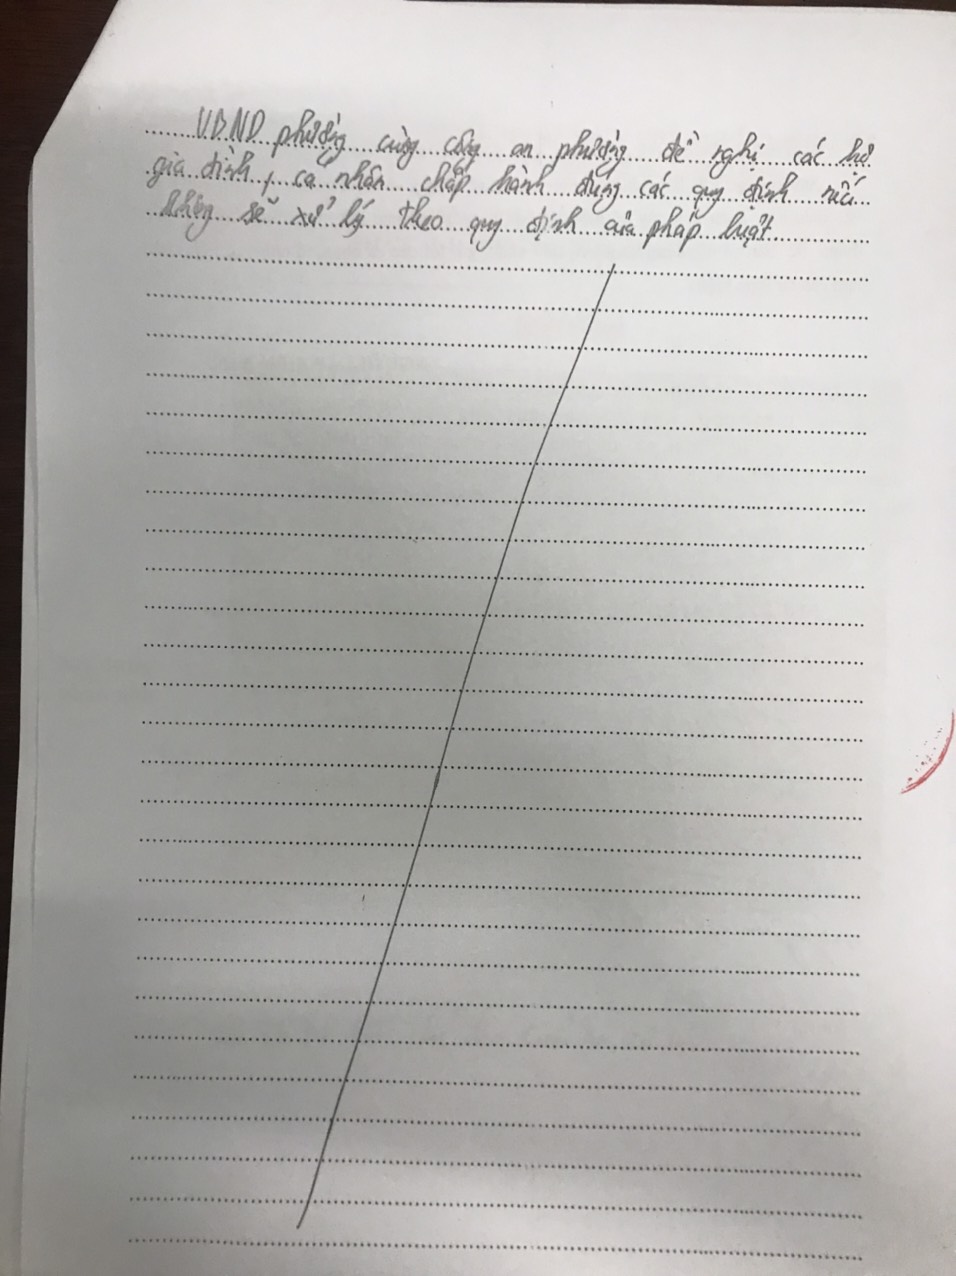 UBND phường cùng công an phường đề nghị các hộ
gia đình, cá nhân chấp hành đúng các quy định nếu
không sẽ xử lý theo quy định của pháp luật